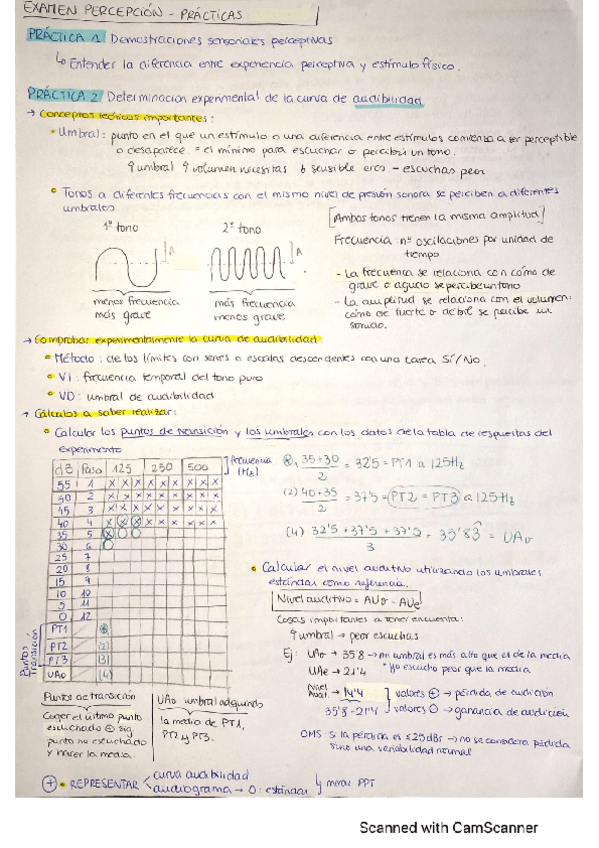 EXAMEN PERCEPCIÓN - PRÁCTICAS
PRÁCTICA 1 Demostraciones sensoriales perceptivas
↳ Entender la diferencia entre experiencia perceptiva y estímulo físico.
PRÁCTICA 2 Determinación experimental de la curva de audibilidad
→ Conceptos teóricos importantes:
• Umbral: punto en el que un estímulo o una diferencia entre estímulos comienza a ser perceptible
o desaparece = el mínimo para escuchar o percibir un tono.
umbral volumen necesitas sensible eres - escuchas peor
• Tonos a diferentes frecuencias con el mismo nivel de presión sonora se perciben a diferentes
umbrales
1º tono 2º tono
A A
menos frecuencia más frecuencia
más grave menos grave
[Ambos tonos tienen la misma amplitud]
Frecuencia: nº oscilaciones por unidad de
tiempo
- La frecuencia se relaciona con cómo de
grave o agudo se percibe un tono
- La amplitud se relaciona con el volumen:
cómo de fuerte o débil se percibe un
sonido.
→ Comprobar experimentalmente la curva de audibilidad
• Método: de los límites con series o escalas descendentes con una tarea Sí/No.
• VI: frecuencia temporal del tono puro
• VD: umbral de audibilidad
→ Cálculos a saber realizar:
• Calcular los puntos de transición y los umbrales con los datos de la tabla de respuestas del
experimento
dB Paso 125 250 500 ] frecuencia
(Hz)
55 1 x x x x x x x x x
50 2 x x x x x x x x x
45 3 x x x x x x x x x
40 4 x x x x x x x x x
35 5 x
30 6
25 7
20 8
15 9
10 10
5 11
0 12
PT1
PT2 (2)
PT3 (3)
UAo (4)
Puntos Transición
35+30/2 = 32'5 = PT1 a 125Hz
(2) 40+35/2 = 37'5 = PT2 = PT3 a 125Hz
(4) 32'5 + 37'5 + 37'5/3 = 35'83 = UAo
• Calcular el nivel auditivo utilizando los umbrales
estándar como referencia.
Nivel auditivo = AUo - AUe
Cosas importantes a tener encuenta:
umbral → peor escuchas
Ej: UAo → 35'8 → mi umbral es más alto que el de la media
UAe → 21'4 * yo escucho peor que la media
Nivel Audit. → 14'4 ] valores + → pérdida de audición
35'8 - 21'4 valores ⊖ → ganancia de audición
OMS: si la pérdida el ≤25dBs → no se considera pérdida
sino una variabilidad normal
Puntos de transición
Coger el último punto
escuchado ⊕ sig.
punto no escuchado
y hacer la media.
UAo umbral adquirido
la media de PT1,
PT2 y PT3.
⊕ • REPRESENTAR curva audibilidad
audiograma → 0: estándar
y mirar PPT
Scanned with CamScanner